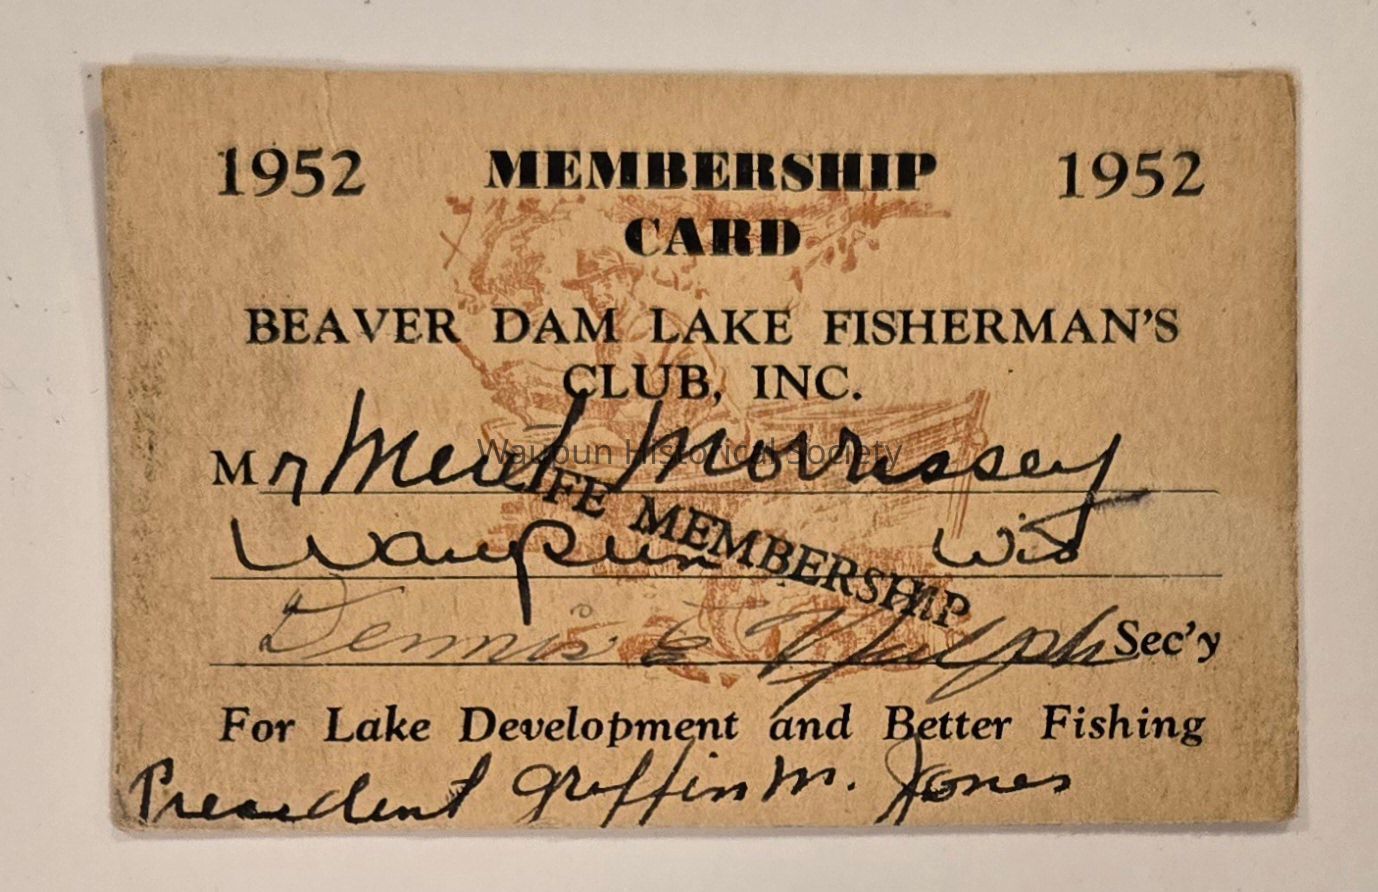 1952 MEMBERSHIP 1952
CARD
BEAVER DAM LAKE FISHERMAN'S
CLUB, INC.
Mr Merit Morrissey
Waupoun Historical Society
LIFE MEMBERSHIP
Waupun Wis
Dennis E Sec'y
For Lake Development and Better Fishing
President Griffin M. Jones